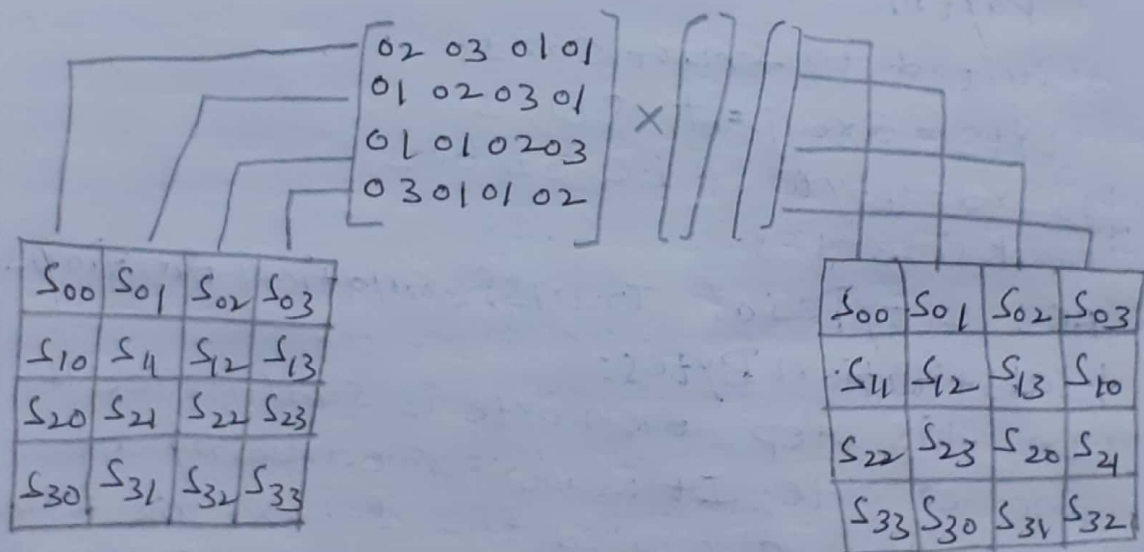 02 03 01 01
01 02 03 01
01 01 02 03
03 01 01 02
× =
S00 S01 S02 S03
S10 S11 S12 S13
S20 S21 S22 S23
S30 S31 S32 S33
S00 S01 S02 S03
S11 S12 S13 S10
S22 S23 S20 S21
S33 S30 S31 S32